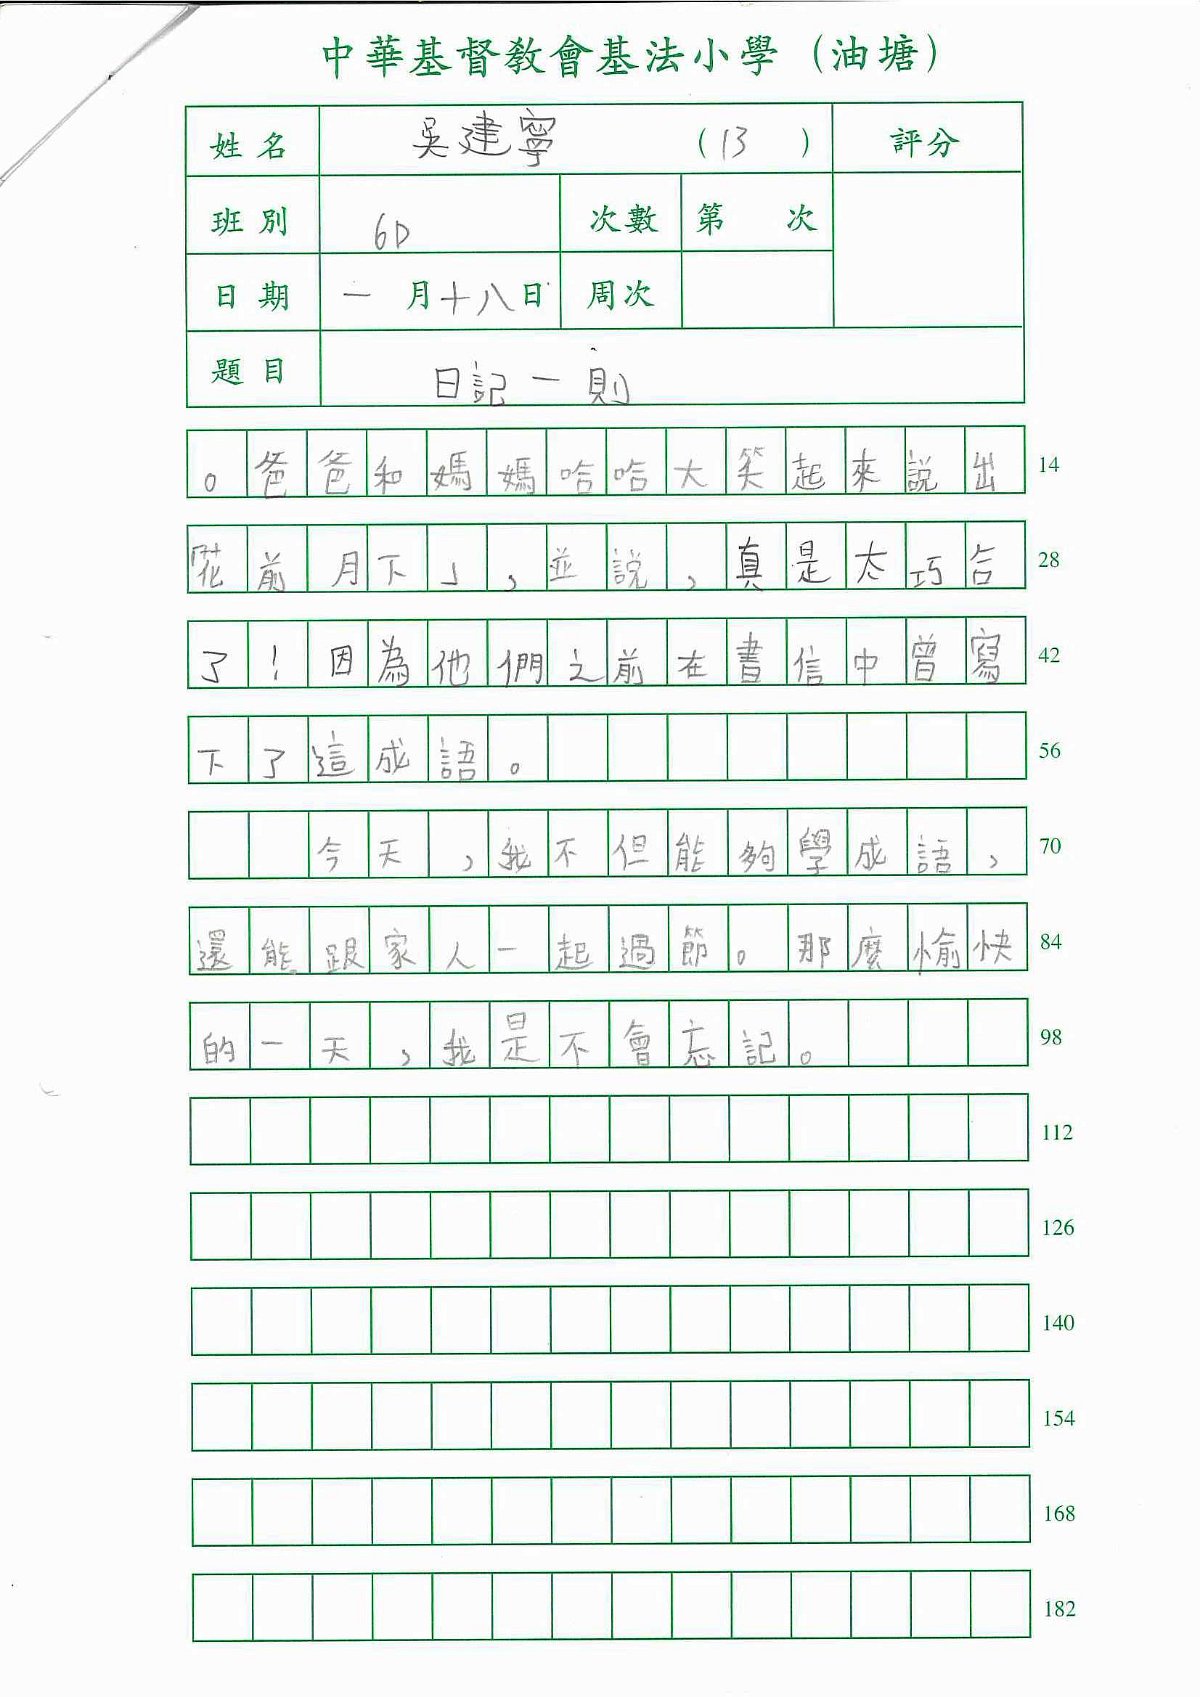 中華基督教會基法小學（油塘）
姓名 吳建寧 （13）評分
班別 6D 次數 第 次
日期 一月十八日 周次
題目 日記一則
。爸爸和媽媽哈哈大笑起來說出 14
「花前月下」，並說，真是太巧合 28
了！因為他們之前在書信中曾寫 42
下了這成語。 56
今天，我不但能夠學成語， 70
還能跟家人一起過節。那麼愉快 84
的一天，我是不會忘記。 98
112
126
140
154
168
182